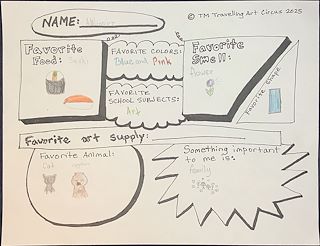 © TM Traveling Art Circus 2025
NAME:
Favorite
Food: Sushi
FAVORITE COLORS:
Blue and Pink
Favorite
Smell:
flower
FAVORITE
SCHOOL SUBJECTS:
Art
Favorite Shape
Favorite art supply:
Favorite Animal:
Cat
Something important
to me is:
family